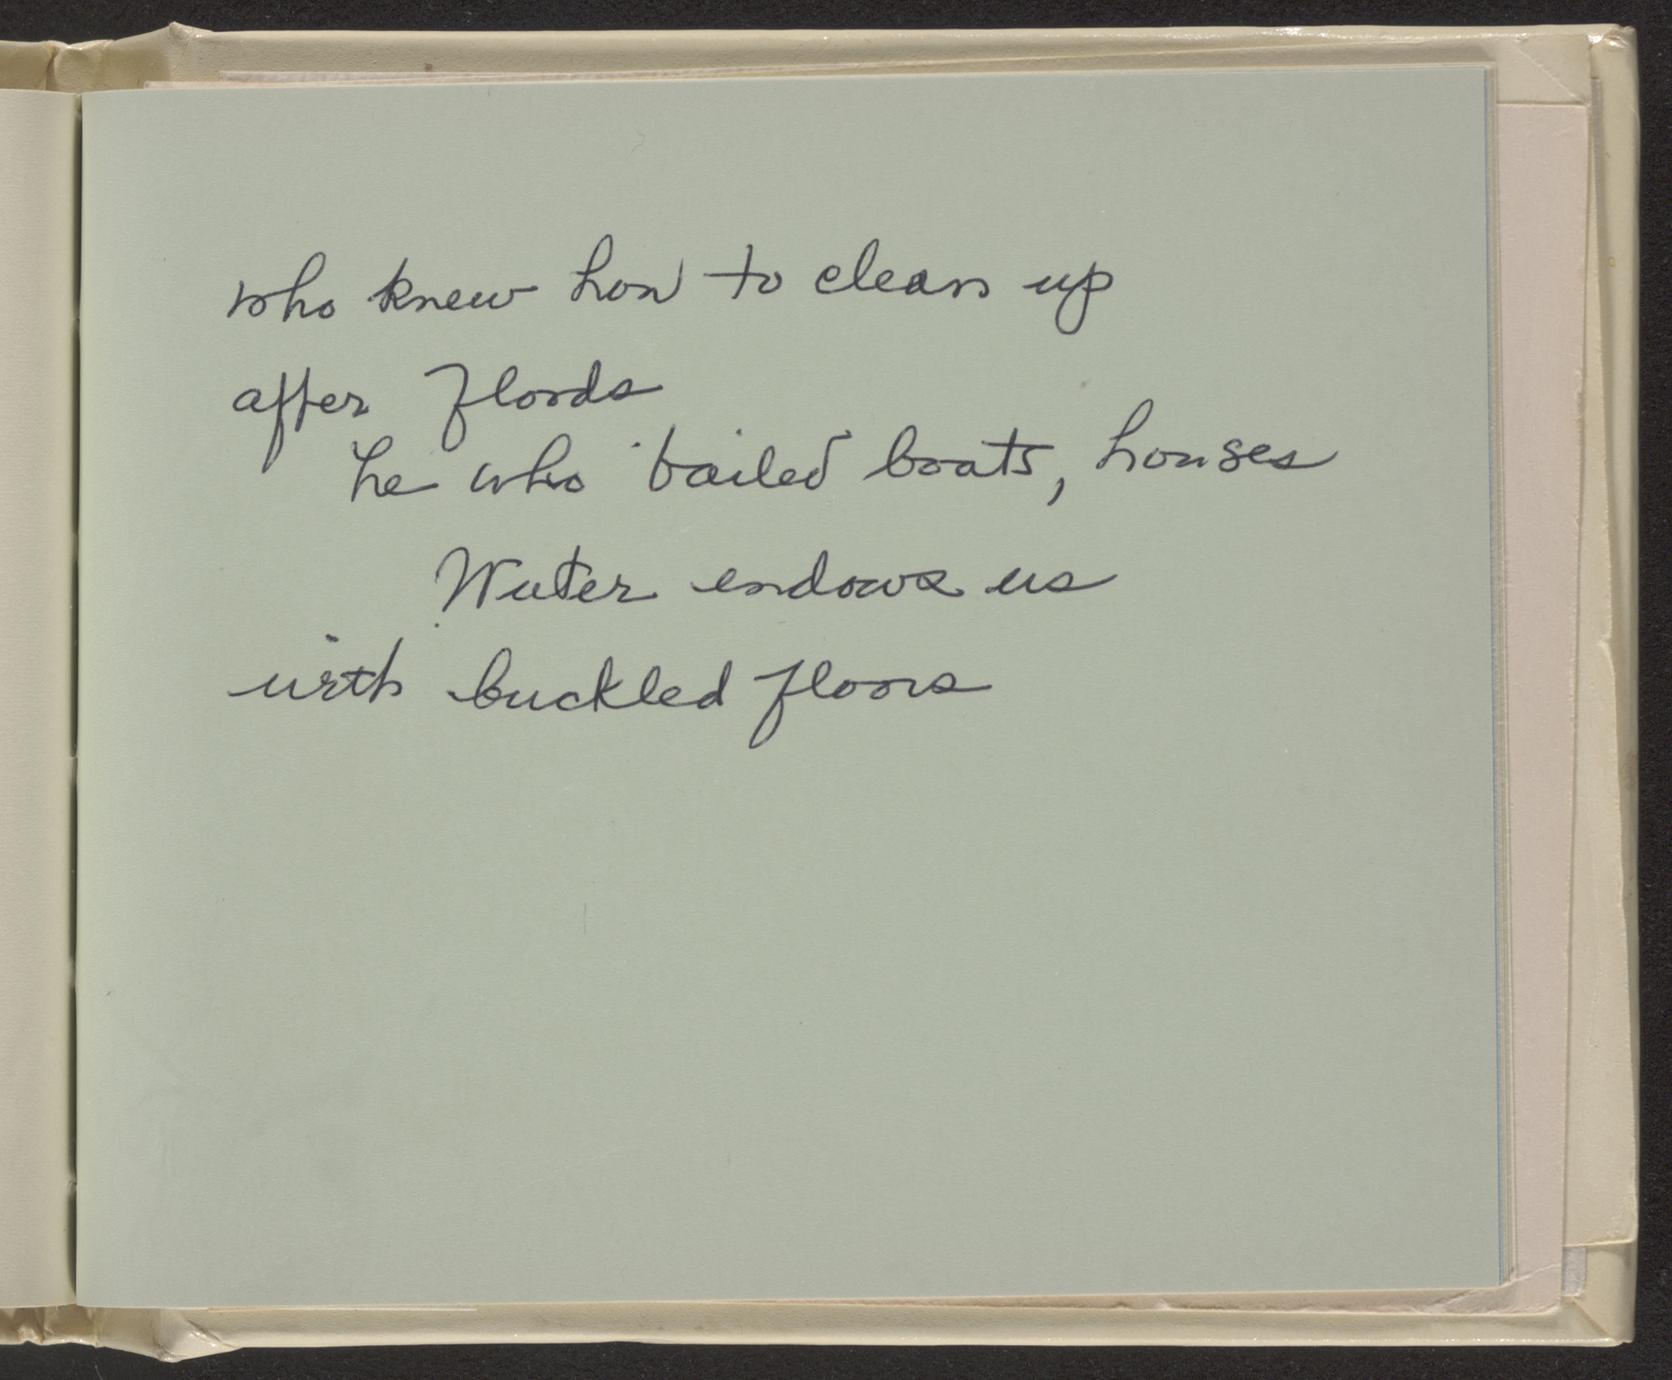 who knew how to clean up
after floods
he who bailed boats, houses
Water endows us
with buckled floors